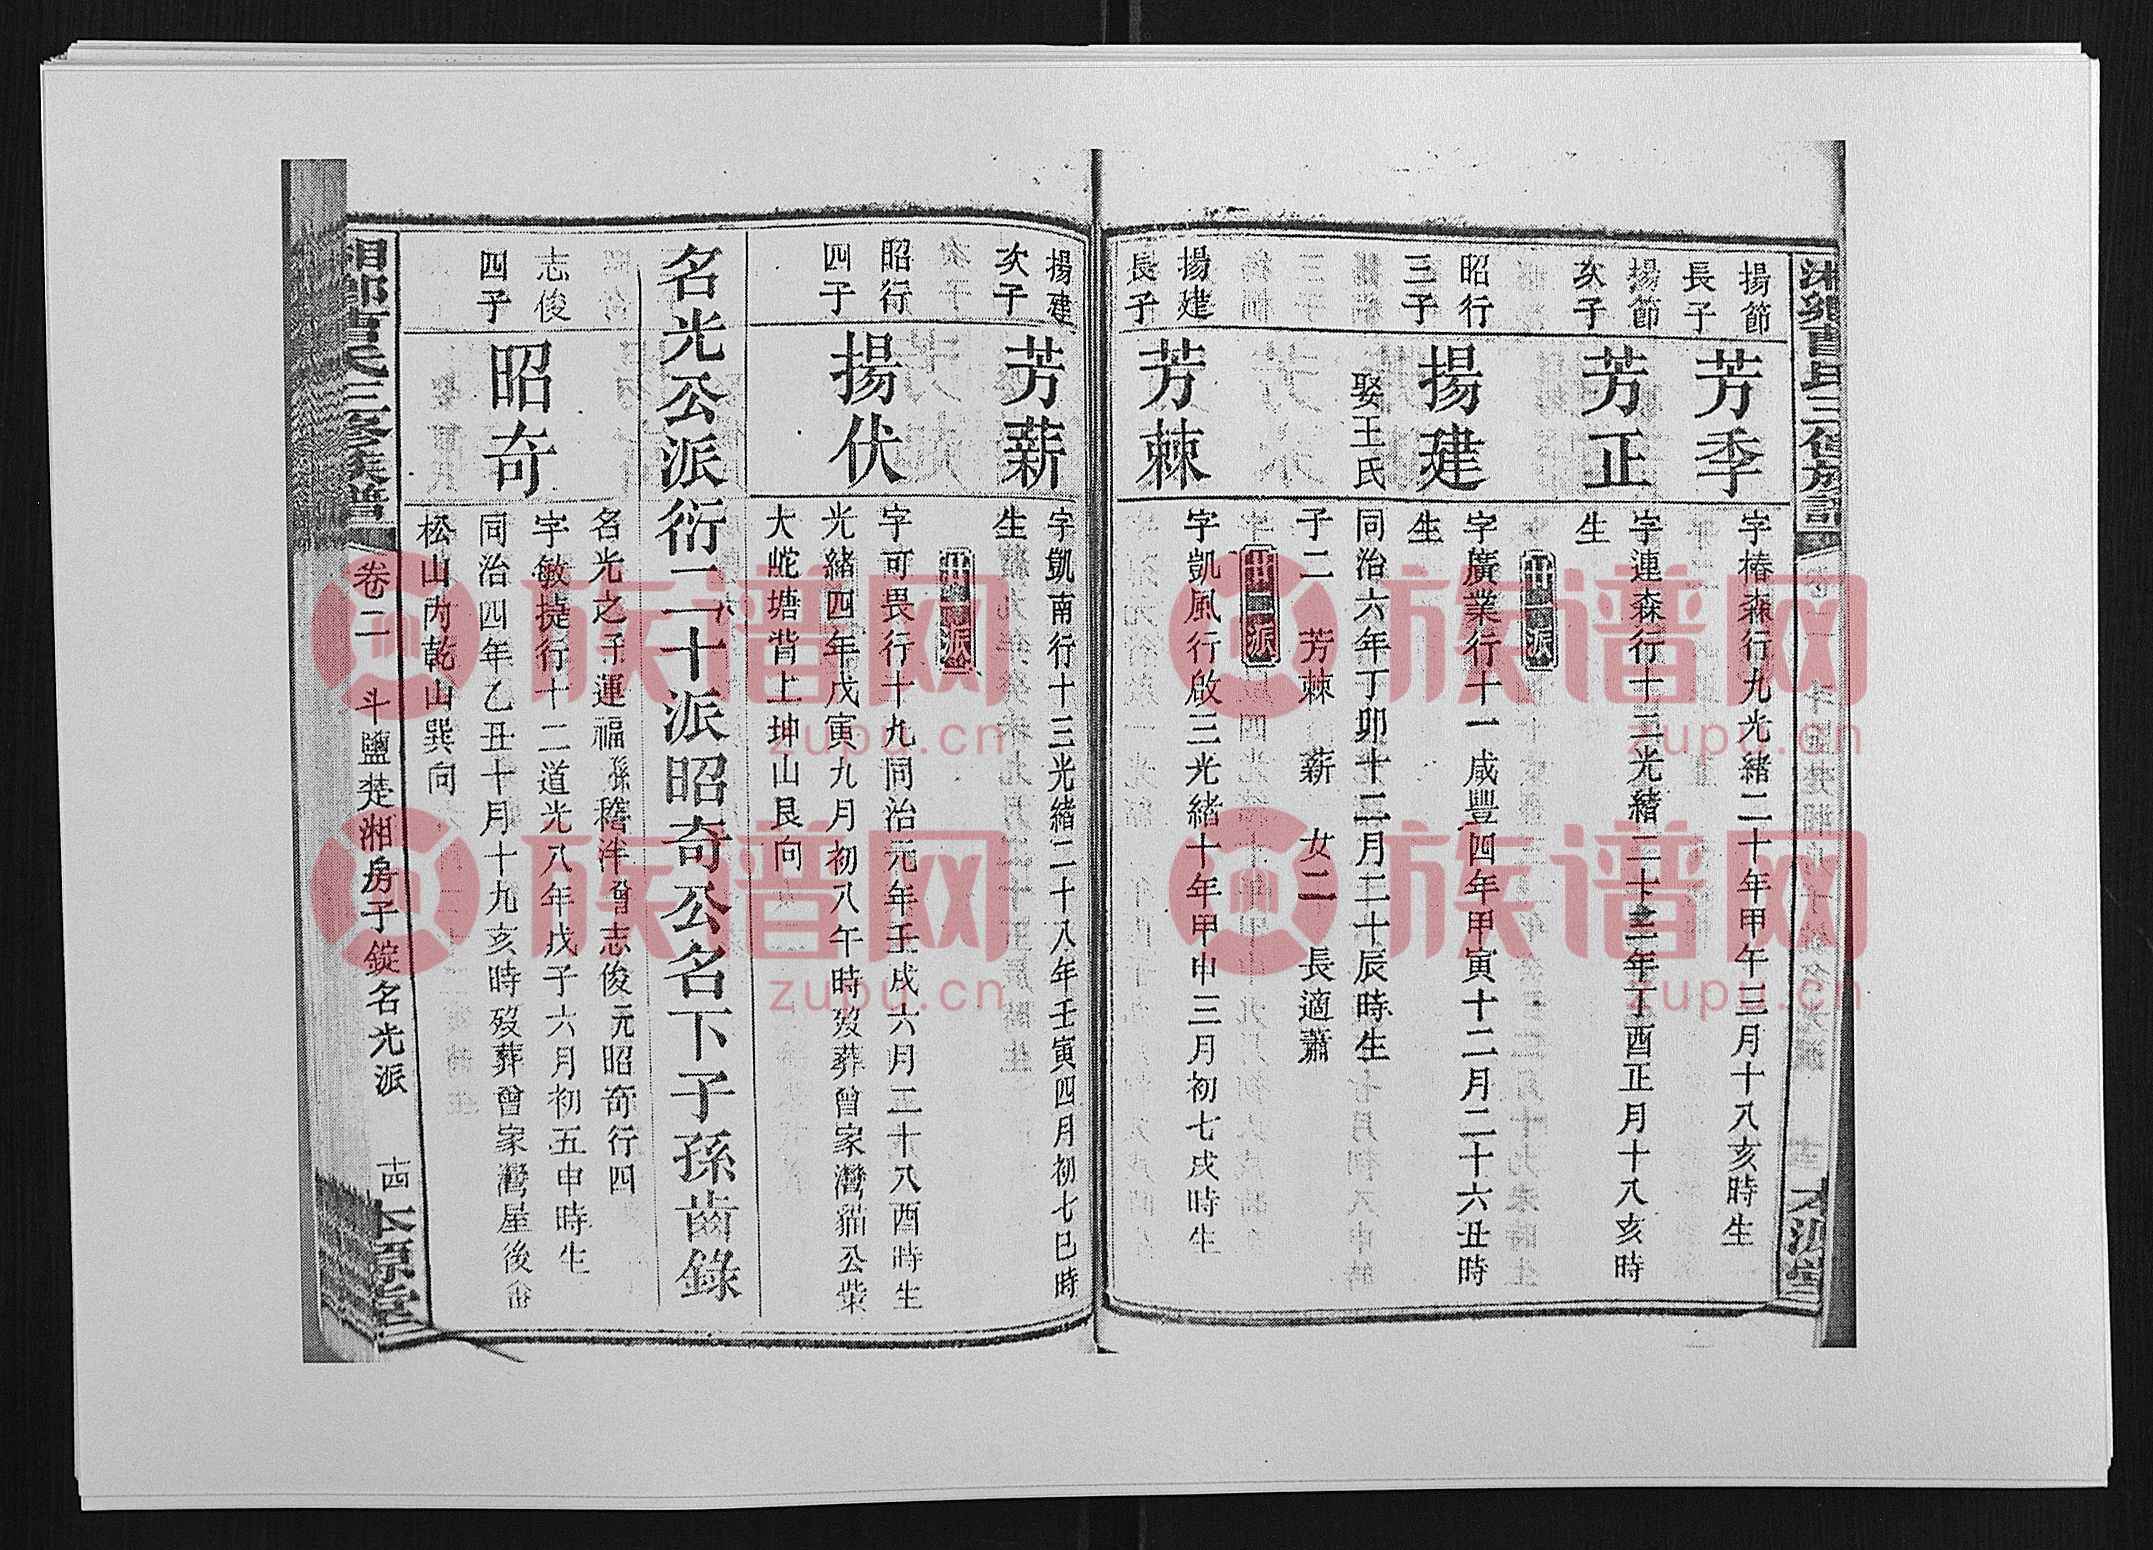 揚節
長子
芳季
字椿森行九光緒二十年甲午三月十八亥時生
揚節
次子
芳正
字連森行十二光緒二十三年丁酉正月十八亥時
生
昭行
三子
揚建
字廣業行十一咸豐四年甲寅十二月二十六丑時
生
娶王氏
同治六年丁卯十二月二十辰時生
子二 芳棘 薪 女二 長適蕭
揚建
長子
芳棘
字凱風行啟三光緒十年甲申三月初七戌時生
揚建
次子
芳薪
字凱南行十三光緒二十八年壬寅四月初七巳時
生
昭行
四子
揚伏
字可畏行十九同治元年壬戌六月二十八酉時生
光緒四年戊寅九月初八午時歿葬曾家灣貓公柴
大蛇塘背上坤山艮向
名光公派衍二十派昭奇公名下子孫齒錄
志俊
四子
昭奇
名光之子運福孫稽泮曾志俊元昭奇行四
字敏捷行十二道光八年戊子六月初五申時生
同治四年乙丑十月十九亥時歿葬曾家灣屋後畲
松山內乾山巽向
卷二 斗鹽楚湘房子錠名光派
十四 本源堂
族谱网
zupu.cn
族谱网
zupu.cn
族谱网
zupu.cn
族谱网
zupu.cn